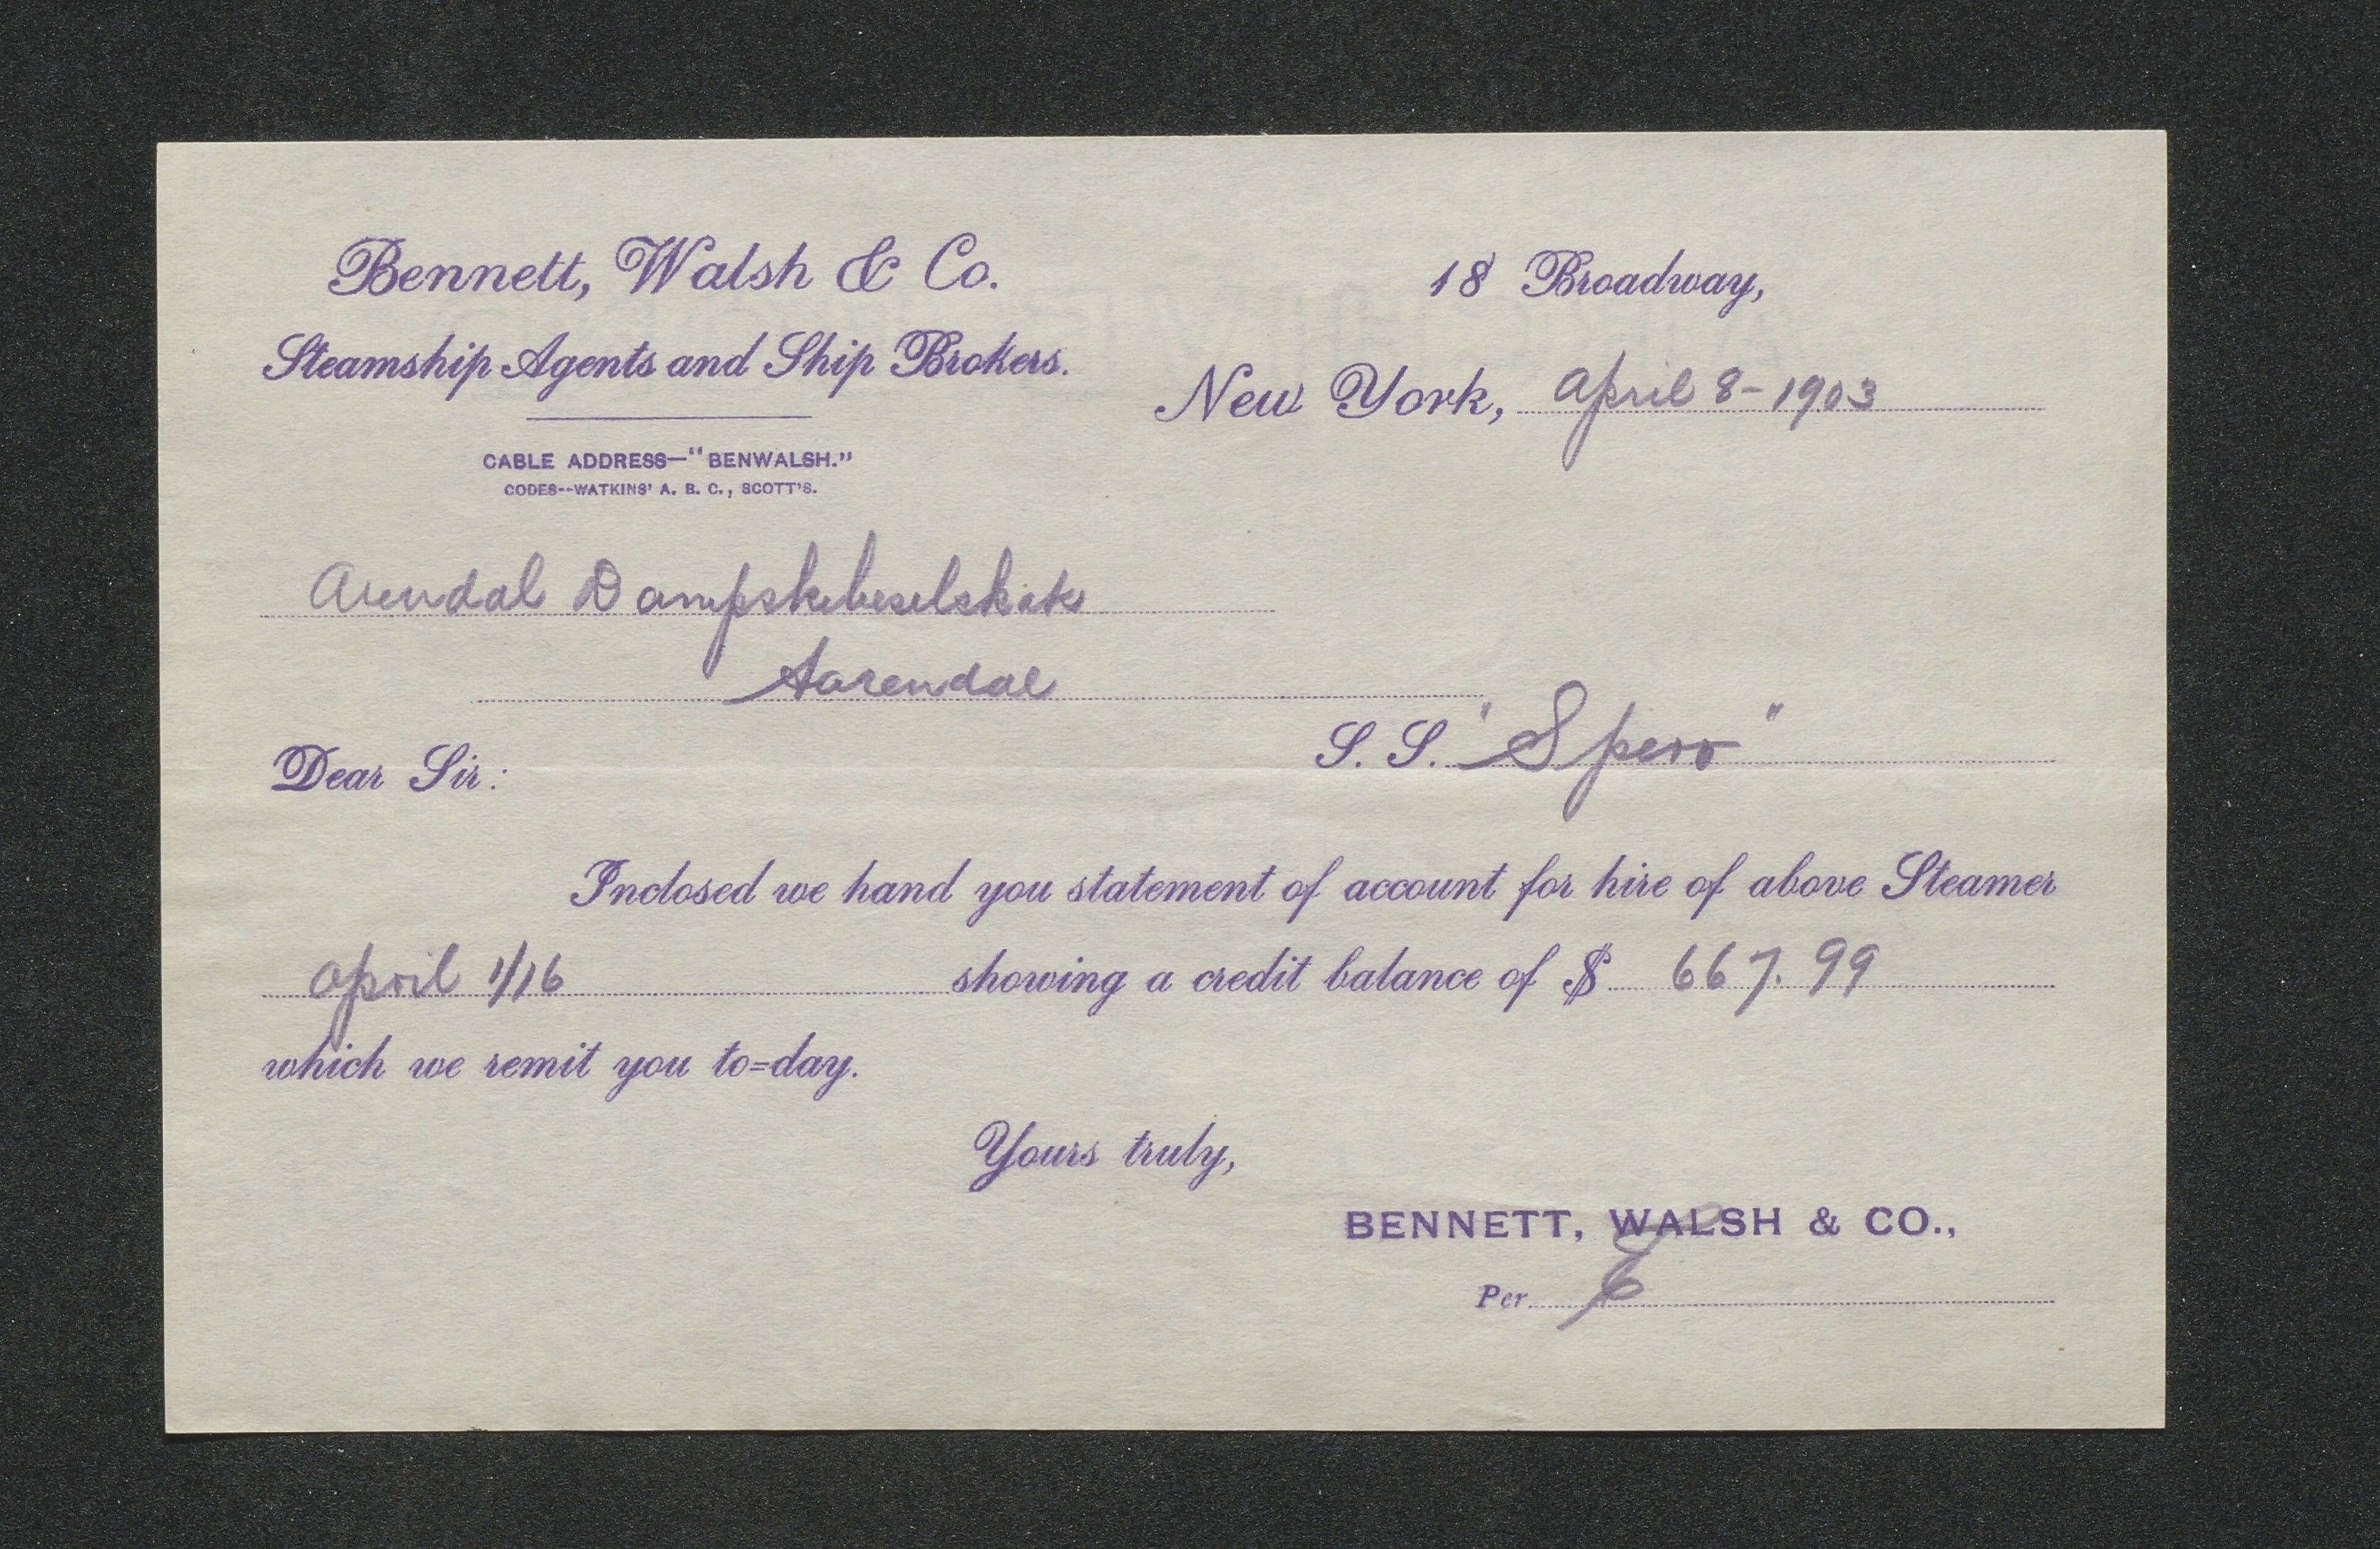 Bennett, Walsh & Co.
Steamship Agents and Ship Brokers.
CABLE ADDRESS—"BENWALSH."
CODES--WATKINS' A. B. C., SCOTT'S.
18 Broadway,
New York, April 8-1903
Arendal Dampskibeselskak
Aarendal
S. S. "Spero"
Dear Sir:
Inclosed we hand you statement of account for hire of above Steamer
april 1/16 showing a credit balance of $ 667.99
which we remit you to=day.
Yours truly,
BENNETT, WALSH & CO.,
Per